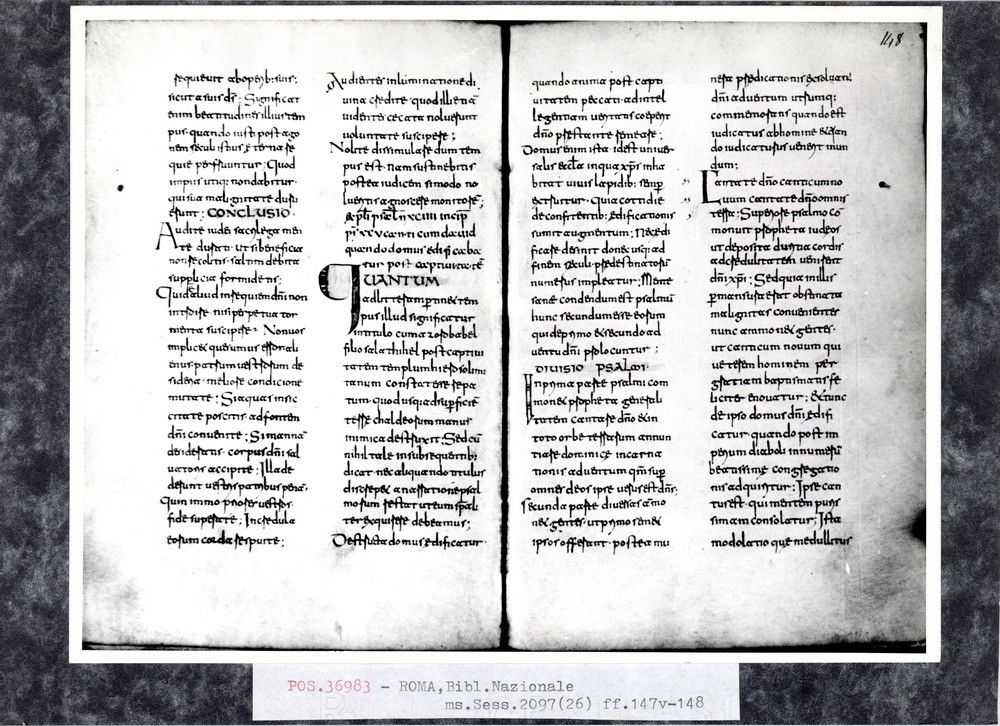 sequieuit aboperib: suis;
sicut a suis ds; Significat
enim beatitudines illius tem
pus quando iusti post ago
nem seculi istius eterna re
quie perfruuntur; Quod
impiis utiq: non dabitur
qui sua malignitate duru
erunt; CONCLUSIO.
Audite iudei sacrilega men
te durati. ut si beneficia
non recoluis. saltim debita
supplicia formidetis;
Quid aliud insequiem dni non
introire. nisi perpetua tor
menta suscipere. Non uos
implicet quesumus error ali
enus. patrum uestrorum de
siderat meliore condicione
mutate; Siaquas insic
citate poscitis. ad fontem
dni conuenite; Si manna
desideratis. corpus dni sal
uatoris accipite; Illa de
derunt uestris patribus penam.
Quin immo priores uestros
fide superate; Incredula
eorum corda respuite;
Audientes inluminatione di
uina credite. quod illi etiam
uidentes cecata noluerunt
uoluntate suscipere;
Nolite dissimulare dum tem
pus est. nam sustinebitis
postea iudicem si modo no
lueritis agnoscere monitorem;
expli psal n xciiii incip
ps xcv canticum dauid
quando domus edificaba
tur post captiuitate
QUANTUM
ad litteram pertinet tem
pus illud significatur
in titulo cum a zorobabel
filio salathihel post captiui
tatem templum hierosolimi
tanum constat esse repa
tum. quod usquead superficie
terre chaldeorum manus
inimica destruxit; Sed cu
nihil tale in subsequentib:
dicat nec aliquando titulus
discrepet a narratione psal
morum restat ut eum spitali
ter exquirere debeamus;
Destructa domus edificatur
148
quando anima post capti
uitatem peccati ad intel
legentiam ueritatis ceperit
dno prestante remeare;
Domus enim ista. id est uniuer
salis eccla in qua xps inha
bitat uiuis lapidib: semp
extruitur. Quia cotidie
de confitentib: edificationis
sumit augmentum; Nec edi
ficare desinit donec usq: ad
finem seculi predestinatorum
numerus impleatur; Mente
sane condendum est psalmu
hunc secundum esse eorum
qui de primo et secundo ad
uentu dni prolocuntur;
DIUISIO PSALMI.
In prima parte psalmi com
monet propheta generali
tatem cantare dno et in
toto orbe terrarum annun
tiare dominice incarna
tionis aduentum qm sup
omnes deos ipse uerus est dns;
Secunda parte diuersas ammo
net gentes. ut primo semet
ipsos offerant. postea mu
nera predicationis exsoluant
dni aduentum utrumq:
commemorans quando est
iudicatus ab homine et quan
do iudicaturus uenerit mun
dum:
Cantate dno canticum no
uum cantate dno omnis
terra; Superiore psalmo co
monuit propheta iudeos
ut deposita duritia cordis
ad credulitatem uenirent
dni xpi; Sed quia in illis
permansura erat obstinata
malignitas conuenienter
nunc ammonet gentes.
ut canticum nouum qui
ueterem hominem per
gratiam baptismatis fe
liciter enouatur; et tunc
de ipso domus dni edifi
catur. quando post im
perium diaboli innumeru
beatissime congregatio
nis adquiritur; Ipse can
tus est. qui mentem puris
simam consolatur; Ista
modolatio que medullitus
POS.36983 - ROMA,Bibl.Nazionale
ms.Sess.2097(26) ff.147v-148